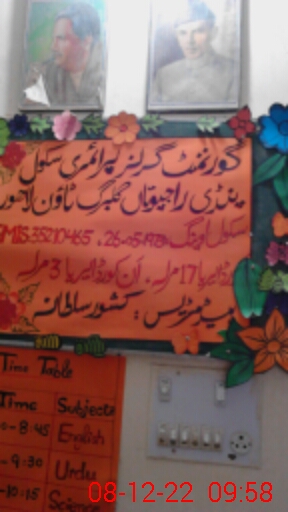 گورنمنٹ گرلز پرائمری سکول
پنڈی راجپوتاں گلبرگ ٹاؤن لاہور
سکول اوپننگ 26-05-1978 ، EMIS 35210465
کورڈ ایریا 17 مرلہ ، ان کورڈ ایریا 3 مرلہ
ہیڈ مسٹریس : کشور سلطانہ
Time Table
Time Subjects
0-8:45 English
-9:30 Urdu
-10:15 Science
08-12-22 09:58